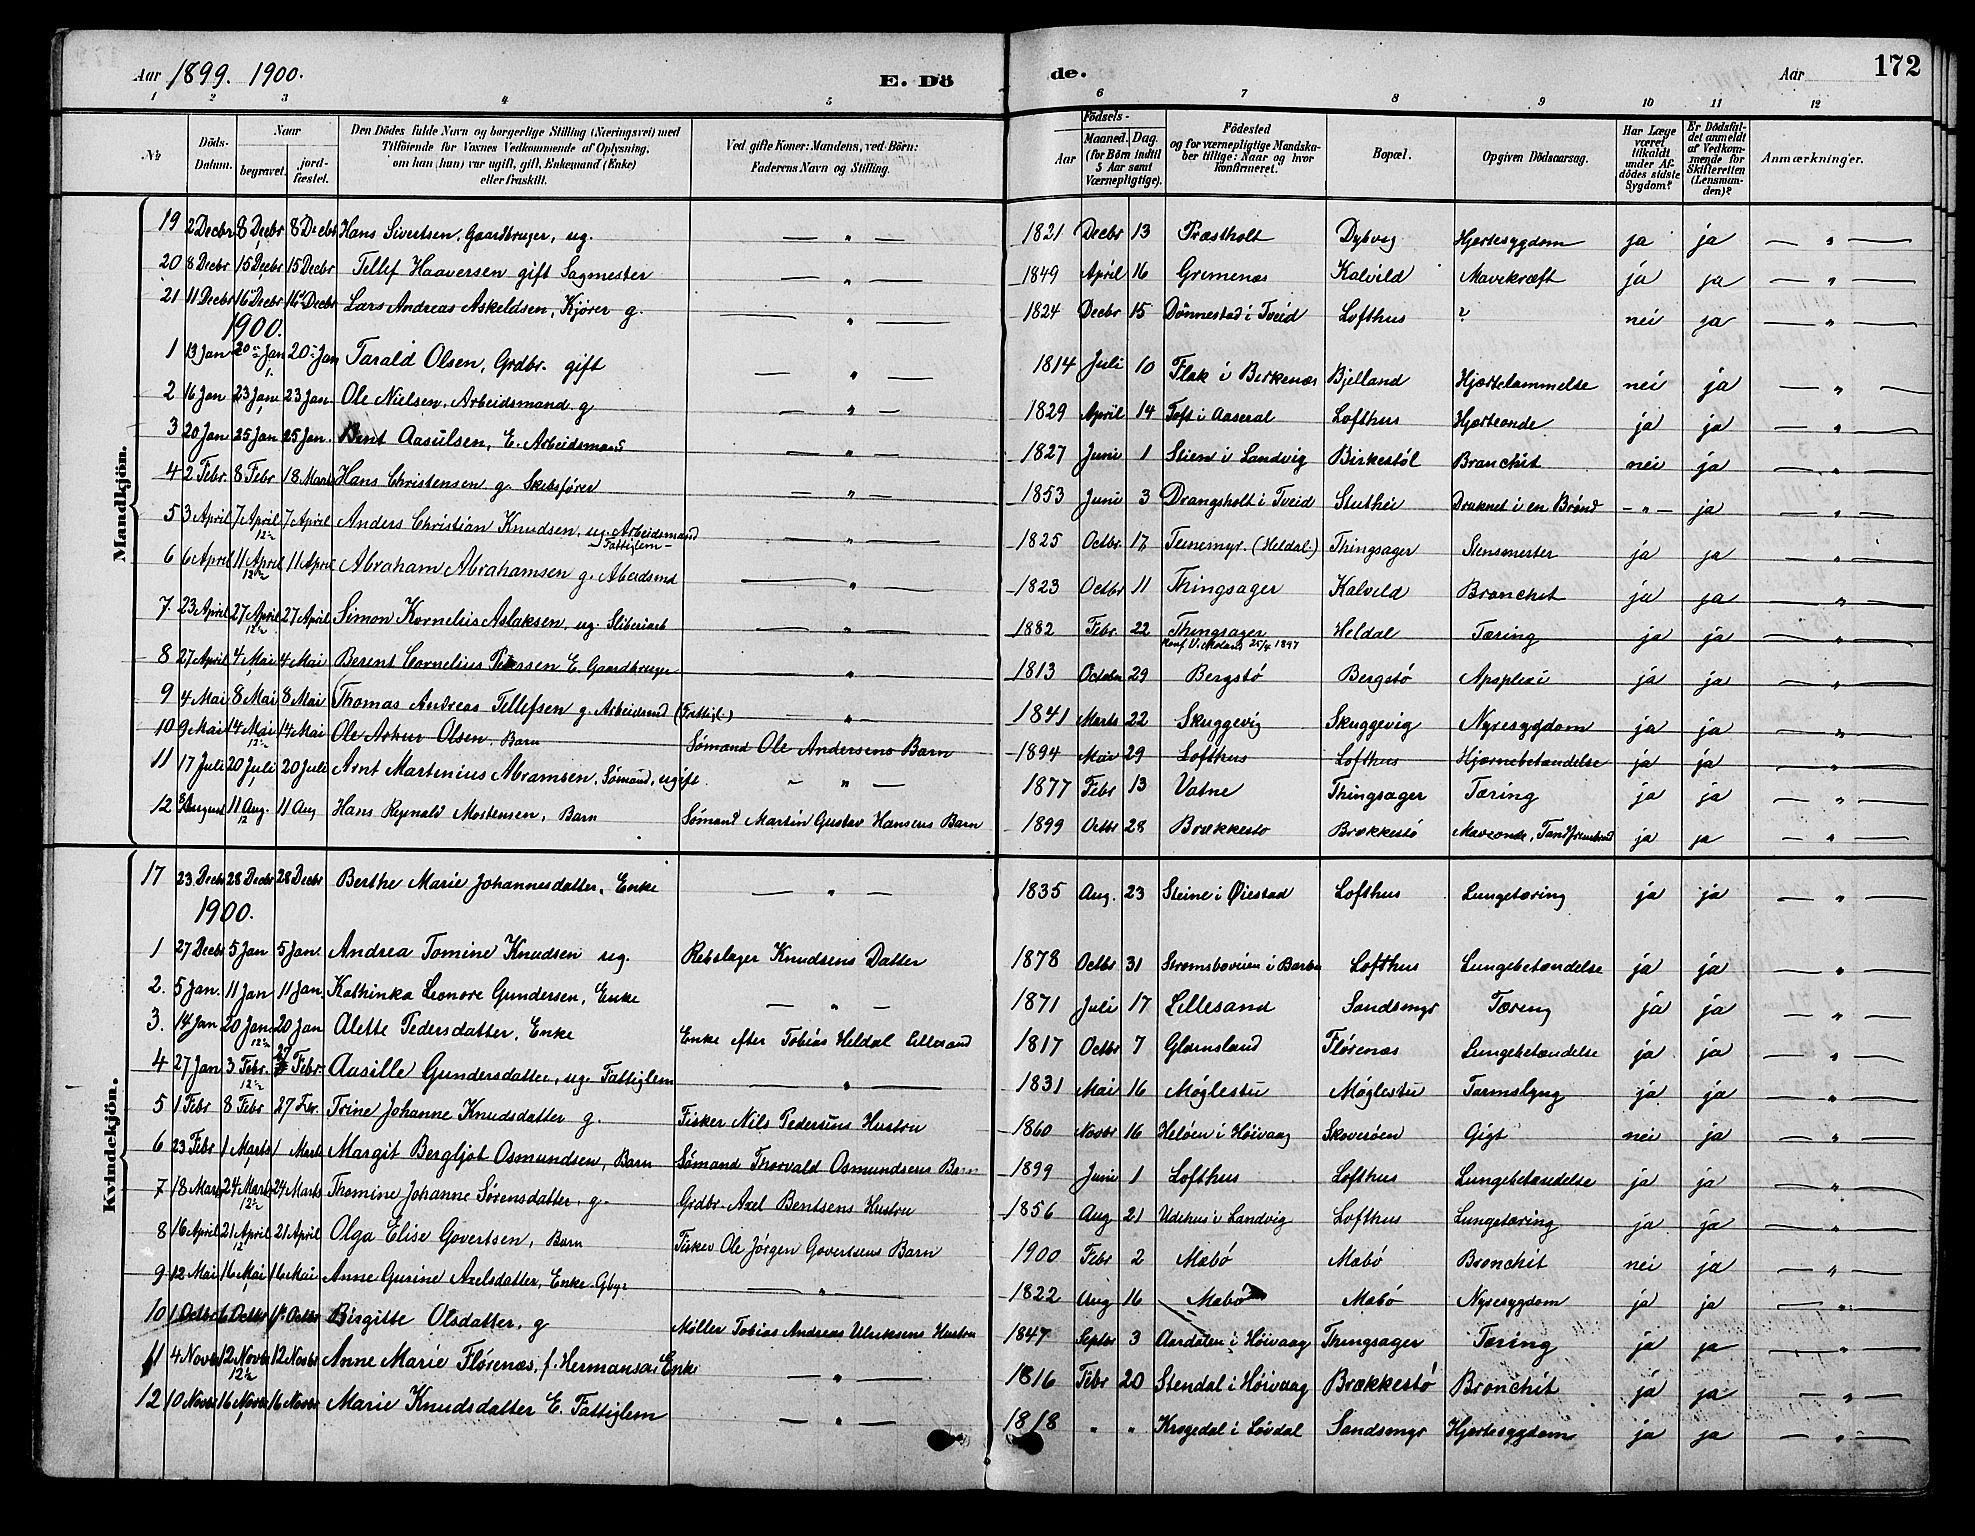 Aar 1899. 1900. E. Dö de. Aar 172
1 2 3 4 5 6 7 8 9 10 11 12
№ Döds-Datum. Naar begravet. jord-fæstet. Den Dödes fulde Navn og borgerlige Stilling (Næringsvei) med Tilföiende for Voxnes Vedkommende af Oplysning, om han (hun) var ugift, gift, Enkemand (Enke) eller fraskilt. Ved gifte Koner: Mandens, ved Börn: Faderens Navn og Stilling. Födsels- Aar Maaned. Dag. (for Börn indtil 5 Aar samt Værnepligtige). Födested og for værnepligtige Mandskaber tillige: Naar og hvor konfirmeret. Bopæl. Opgiven Dödsaarsag. Har Læge været tilkaldt under Afdödes sidste Sygdom? Er Dödsfaldet anmeldt af Vedkommende for Skifteretten (Lensmanden)? Anmærkninger.
Mandkjön.
19 2 Decbr 8 Decbr 8 Decbr Hans Sivertsen, Gaardbruger, ug. — " — 1821 Decbr 13 Præstholt Dybvig Hjertesygdom ja ja — " —
20 8 Decbr 15 Decbr 15 Decbr Tellef Haaversen gift Sagmester — " — 1849 April 16 Gremenæs Kalvild Mavekræft ja ja — " —
21 11 Decbr 16 Decbr 16 Decbr Lars Andreas Askeldsen, Kjører g. — " — 1824 Decbr 15 Dønnestad i Tveid Lofthus ? nei ja — " —
1900.
1 13 Jan 20 Jan 20 Jan Tarald Olsen, Grdbr. gift — " — 1814 Juli 10 Flak i Birkenæs Bjelland Hjertelammelse nei ja — " —
2 16 Jan 23 Jan 23 Jan Ole Nielsen, Arbeidsmand g — " — 1829 April 14 Toft i Aaseral Lofthus Hjerteonde ja ja — " —
3 20 Jan 25 Jan 25 Jan. Bent Aasulsen, E. Arbeidsmand — " — 1827 Juni 1 Stien i Landvig Birkestøl Bronchit nei ja — " —
4 2 Febr. 8 Febr 18 Marts Hans Christensen g. Skibsfører — " — 1853 Juni 3 Drangsholt i Tveid Stuthei Druknet i en Brønd — " — ja — " —
5 3 April 7 April 7 April Anders Christian Knudsen, ug. Arbeidsmand — " — 1825 Octbr 17 Teinemyr. (Heldal) Thingsager Stensmerter ja ja — " —
12½ Fattiglem
6 6 April 11 April 11 April Abraham Abrahamsen g. Abeidsmd — " — 1823 Octbr 11 Thingsager Kalvild Bronchit ja ja — " —
12½
7. 23 April 27 April 27 April Simon Kornelius Aslaksen, ug. — " — 1882 Febr. 22 Thingsager Heldal Tæring ja ja — " —
12½ Konf V. Moland 25/4 1897
8 27 April 4 Mai 4 Mai Berent Cornelius Terssen E. Gaardbruger — " — 1813 October 29 Bergstø Bergstø Apoplexi ja ja — " —
9 4 Mai 8 Mai 8 Mai Thomas Andreas Tellefsen g. Arbeidsmd (Fattigl.) — " — 1841 Marts 22 Skuggevig Skuggevig Nyresygdom ja ja — " —
10 9 Mai 14 Mai 14 Mai Ole Arthur Olsen, Barn Sømand Ole Andersens Barn 1894 Mai 29 Lofthus Lofthus Hjernebetændelse ja ja — " —
12½
11 17 Juli 20 Juli 20 Juli Arnt Martenius Abramsen, Sømand, ugift. — " — 1877 Febr 13 Vatne Thingsager Tæring ja ja — " —
12 August 11 Aug. 11 Aug Hans Reynald Mortensen, Barn Sømand Martin Gustav Hansens Barn 1899 Octbr 28 Brækkestø Brækkestø Maveonde, ja ja — " —
12
Kvindekjön.
17 23 Decbr 28 Decbr 28 Decbr Berthe Marie Johannesdatter, Enke — " — 1835 Aug. 23 Steine i Øiestad Lofthus Lungetæring ja ja — " —
1900.
1 27 Decbr 5 Jan 5 Jan. Andrea Tomine Knudsen ug. Rebslager Knudsens Datter 1878 Octbr 31 Strømsboveien i Barbo Lofthus Lungebetændelse ja ja — " —
2. 5 Jan. 11 Jan 11 Jan. Kathinka Leonore Gundersen, Enke — " — 1871 Juli 17 Lillesand Sandsmyr Tæring ja ja — " —
3. 14 Jan 20 Jan 20 Jan Alette Pedersdatter, Enke Enke efter Tobias Heldal Lillesand 1817 Octbr 7 Glamsland Flørenæs Lungebetændelse ja ja — " —
12½
4 27 Jan 3 Febr. 27 Febr. Aasille Gundersdatter, ug. Fattiglem — " — 1831 Mai 16 Møglestu Møglestu Tarmslyng ja ja — " —
12½
5 1 Febr 8 Febr 27 Febr. Trine Johanne Knudsdatter g. Fisker Nils Pedersens Hustru 1860 Novbr 16 Heløen i Høivaag Skoverøen Gigt nei ja — " —
6 23 Febr 1 Marts 1 Marts Margit Bergljot Osmundsen, Barn Sømand Thorvald Osmundsens Barn 1899 Juni 1 Lofthus Lofthus Lungebetændelse ja ja — " —
7 18 Marts 24 Marts 24 Marts Thomine Johanne Sørensdatter, g. Grdbr. Axel Bentsens Hustru 1856 Aug 21 Udehus i Landvig Lofthus Lungetæring ja ja — " —
12½
8 16 April 21 April 21 April Olga Elise Govertsen, Barn Fisker Ole Jørgen Govertsens Barn 1900 Febr 2 Mabø Mabø Bronchit nei ja — " —
12
9 12 Mai 16 Mai 16 Mai Anne Gurine Axelsdatter, Enke — " — 1822 Aug 16 Mabø Mabø Nyresygdom ja ja — " —
10 1 Octbr 6 Octbr Octbr Birgitte Olsdatter, g Møller Tobias Andreas Ulriksens Hustru 1847 Septbr 3 Aardalen i Høivaag Thingsager Tæring ja ja — " —
11 4 Novbr 12 Novbr 12 Novbr Anne Marie Flørenæs, f. Hermansen Enke — " — 1816 Febr 20 Stendal i Høivaag Brækkestø Bronchit ja ja — " —
12½
12 10 Novbr 16 Novbr 16 Novbr Marie Knudsdatter E. Fattiglem — " — 1818 " " Krogedal i Løvdal Sandsmyr Hjertesygdom ja ja — " —